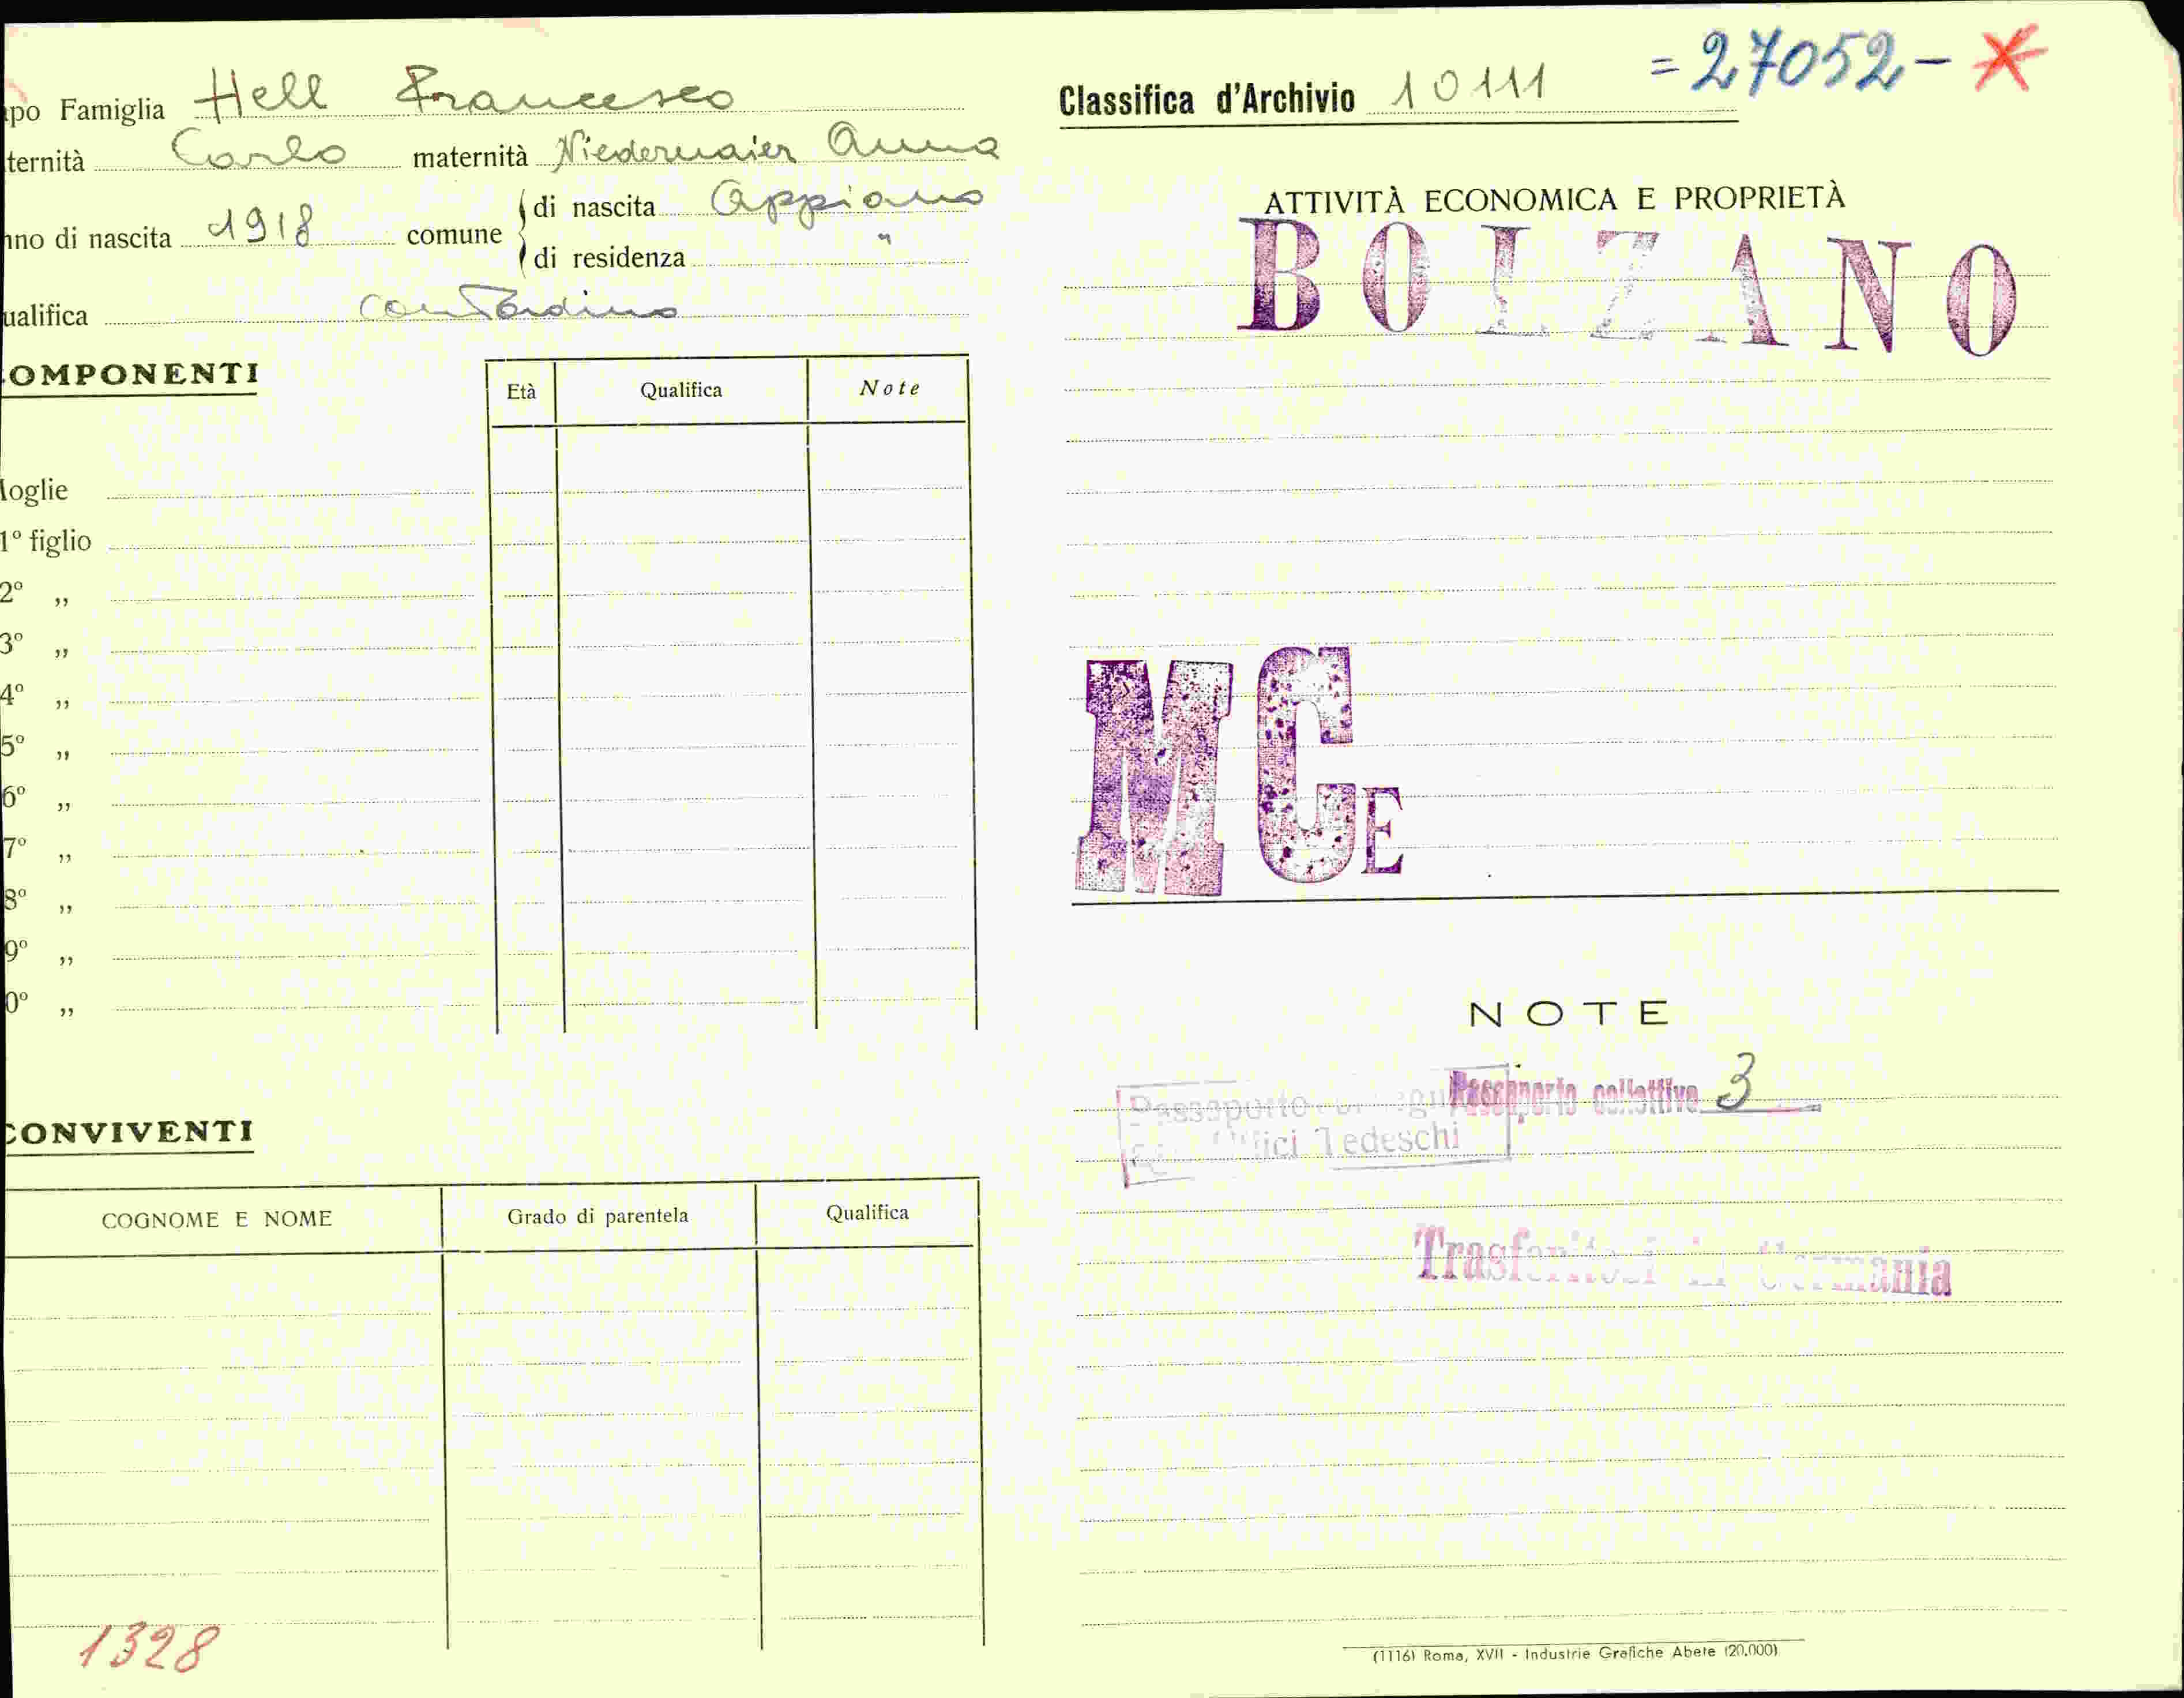 apo Famiglia Hell Francesco
ternità Carlo maternità Niedermaier Anna
nno di nascita 1918 comune di nascita Appiano
di residenza "
ualifica contadino
COMPONENTI
Età Qualifica Note
loglie
1° figlio
2° „
3° „
4° „
5° „
6° „
7° „
8° „
9° „
0° „
CONVIVENTI
COGNOME E NOME Grado di parentela Qualifica
1328
Classifica d'Archivio 10111 =27052-*
ATTIVITÀ ECONOMICA E PROPRIETÀ
BOLZANO
MCE
NOTE
Passaporto collettivo 3
Passaporto
Tedeschi
Trasferitosi in Germania
(1116) Roma, XVII - Industrie Grafiche Abete (20.000)